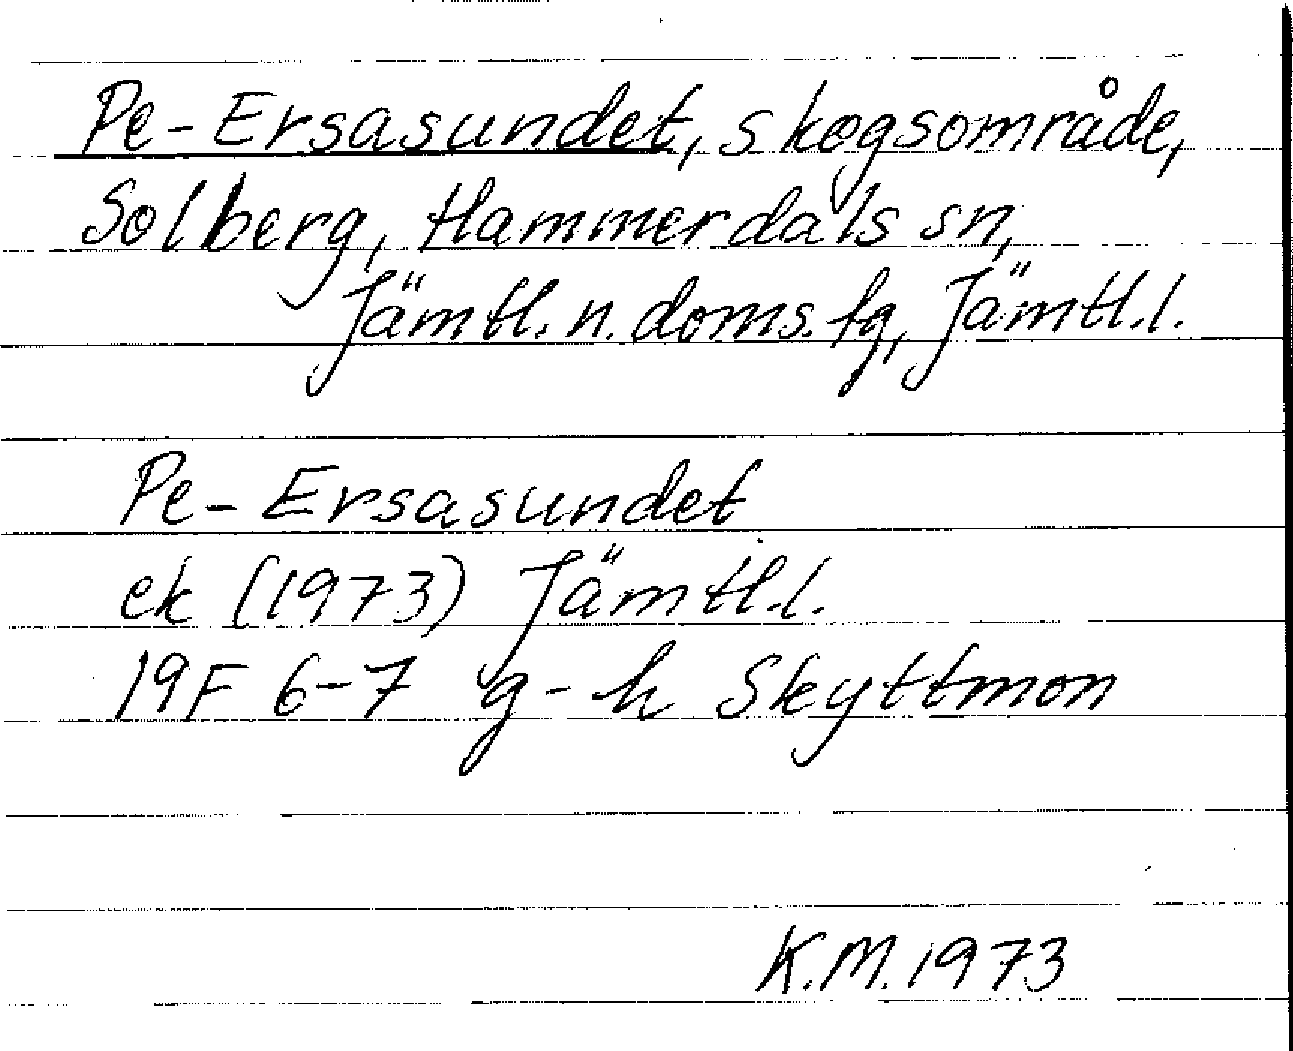 Pe-Ersasundet, skogsområde,
Solberg, Hammerdals sn,
Jämtl. n. doms. tg, Jämtl. l.
Pe-Ersasundet
ek (1973) Jämtl. l.
19F 6-7 g-h Skyttmon
K.M. 1973